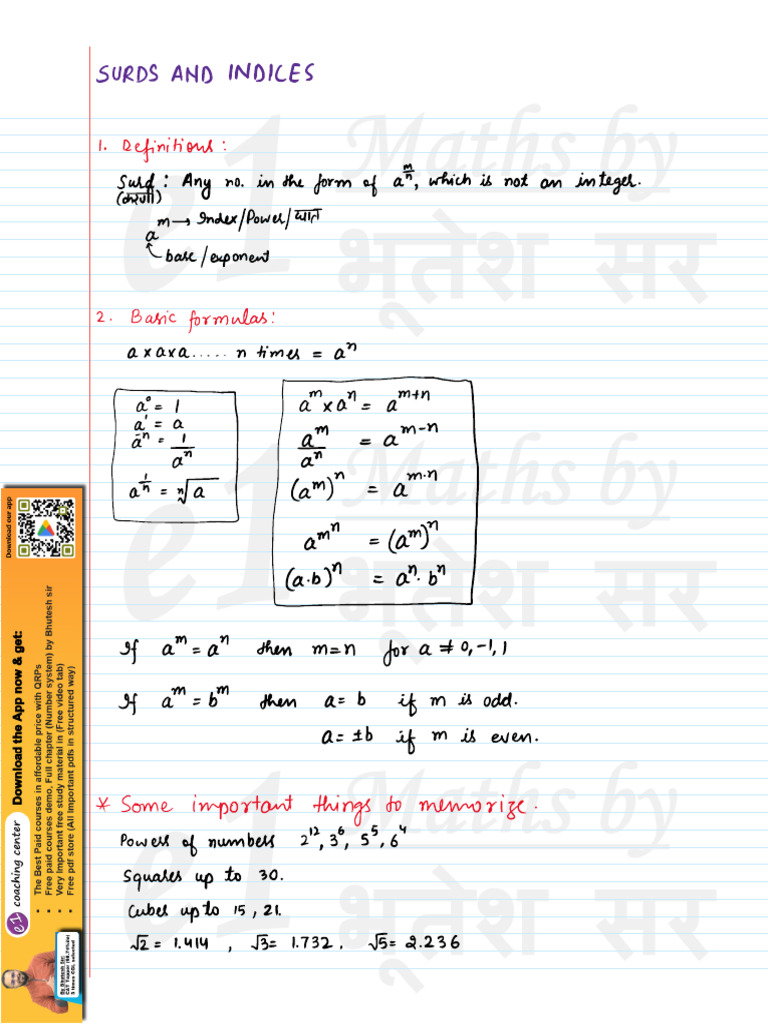 SURDS AND INDICES
1. Definitions:
Surd: Any no. in the form of a^(m/n), which is not an integer.
(करणी)
a^m → Index/Power/घात
base/exponent
2. Basic formulas:
a×a×a..... n times = a^n
a^0 = 1
a^1 = a
a^-n = 1/a^n
a^(1/n) = ⁿ√a
a^m × a^n = a^(m+n)
a^m/a^n = a^(m-n)
(a^m)^n = a^(m·n)
a^m^n = (a^m)^n
(a·b)^n = a^n · b^n
If a^m = a^n then m=n for a ≠ 0,-1,1
If a^m = b^m then a = b if m is odd.
a = ±b if m is even.
* Some important things to memorize.
Powers of numbers 2^12, 3^6, 5^5, 6^4
Squares up to 30.
Cubes up to 15, 21.
√2 = 1.414 , √3 = 1.732 . √5 = 2.236
e1 Maths by
भूतेश सर
e1 Maths by
भूतेश सर
e1 Maths by
भूतेश सर
Download our app
e1 coaching center
Download the App now & get:
• The Best Paid courses in affordable price with QRPs
• Free paid courses demo, Full chapter (Number system) by Bhutesh sir
• Very Important free study material in (Free video tab)
• Free pdf store (All Important pdfs in structured way)
By Bhutesh Sir